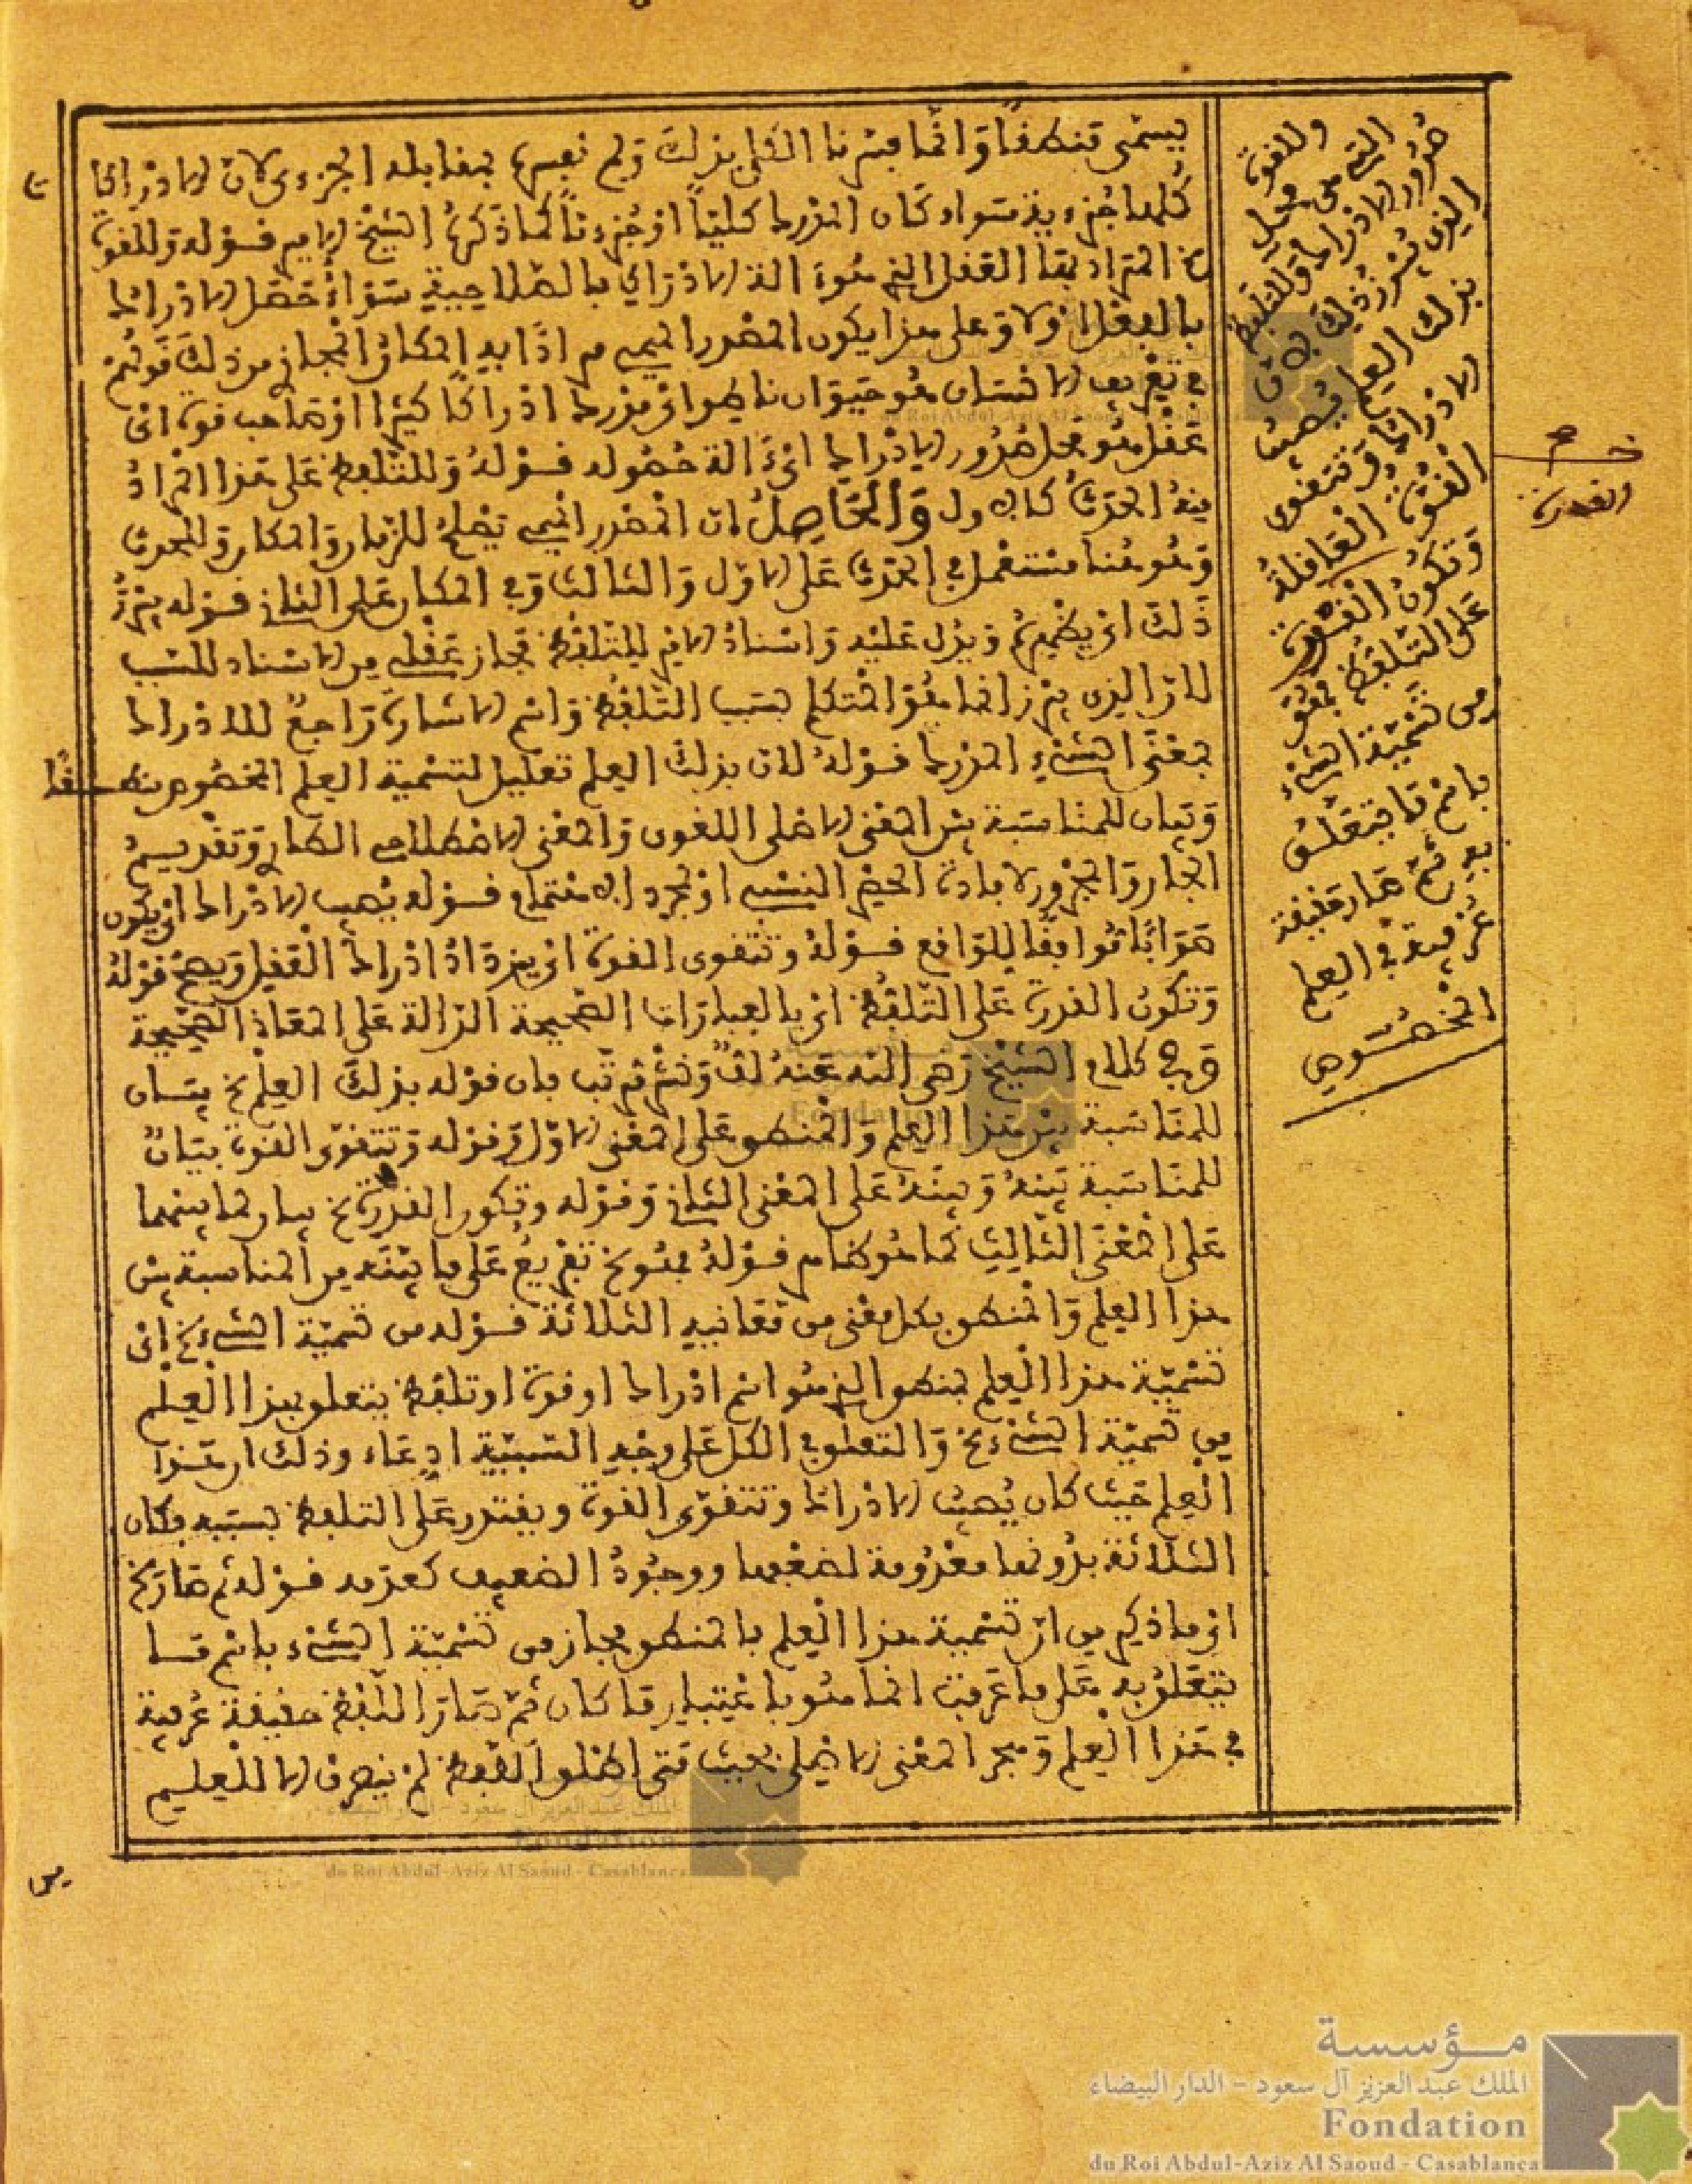 يسمى منطقا وانما فسرنا الكلى بذلك ولم نفسره بمقابله الجزءى لان الادراك
كلها جزءية سواء كان المدرك كليا او جزءيا كما ذكره الشيخ الامير قوله وللقوة
الخ المراد بها العقل الذى هو الة الادراك بالصلاحية سواء حصل الادراك
بالفعل ام لا وعلى هذا يكون المصدر الميمى مرادا به المكان المجاز من ذلك قولهم
فى تعريف الانسان هو حيوان ناطق اى مدرك ادراكا كثيرا او صاحب قوة اى
عقل هو محل صدور الادراك اى الة حصوله قوله وللتلفظ على هذا المراد
منه الحدث كالاول والحاصل ان المصدر الميمى يصلح للزمان والمكان والحدث
وهو هنا مستعمل فى الحدث على الاول والثالث وفى المكان على الثانى قوله يبرز
ذلك اى يظهره ويدل عليه واسناد الابراز للتلفظ مجاز عقلى من الاسناد للسبب
لان الذى يبرز انما هو المتكلم بسبب التلفظ واسم الاشارة راجع للادراك
بمعنى الشىء المدرك قوله لان بذلك العلم تعليل لتسمية العلم المخصوص منطقا
وبيان للمناسبة بين المعنى الاصلى اللغوى والمعنى الاصطلاحى الطار وتقديم
الجار والمجرور لافادة الحصر النسبى او لمجرد الاهتمام قوله يصيب الادراك اى يكون
صوابا موافقا للواقع قوله وتتقوى القوة اى يزداد ادراك العقل ويصح قوله
وتكون القدرة على التلفظ اى بالعبارات الصحيحة الدالة على المعانى الصحيحة
وفى كلام الشيخ رضى الله عنه لف ونشر مرتب فان قوله بذلك العلم الخ بيان
للمناسبة بين هذا العلم والمنطق على المعنى الاول وقوله وتتقوى القوة بيان
للمناسبة بينه وبينه على المعنى الثانى وقوله وتكون القدرة الخ بيان لما بينهما
على المعنى الثالث كما هو ظاهر قوله فهو الخ تفريع على ما بينه من المناسبة بين
هذا العلم والمنطق بكل معنى من معانيه الثلاثة قوله من تسمية الشىء الخ اى
تسمية هذا العلم بمنطق الذى هو اسم ادراك او قوة او تلفظ يتعلق بهذا العلم
من تسمية الشىء الخ والتعلق فى الكل على وجه السببية ادعاء وذلك ان هذا
العلم حيث كان يصيب الادراك وتتقوى القوة ويقتدر على التلفظ بسببه فكان
الثلاثة بدونها معدومة لضعفها ووجود الضعيف كعدمه قوله ثم صار الخ
اى ما ذكر من ان تسمية هذا العلم بالمنطق مجاز من تسمية الشىء باسم ما
يتعلق به على ما عرفت انما هو باعتبار ما كان ثم صار اللفظ حقيقة عرفية
فى هذا العلم وهجر المعنى الاصلى بحيث متى اطلق اللفظ لم ينصرف الا للعلم
وللقوة
التى هى محل
صدور الادراك وللتلفظ
الذى يبرز ذلك لان
بذلك العلم يصيب
الادراك وتتقوى
القوة العاقلة
وتكون القدرة
على التلفظ فهو
من تسمية الشىء
باسم ما يتعلق
به ثم صار حقيقة
عرفية فى العلم
المخصوص